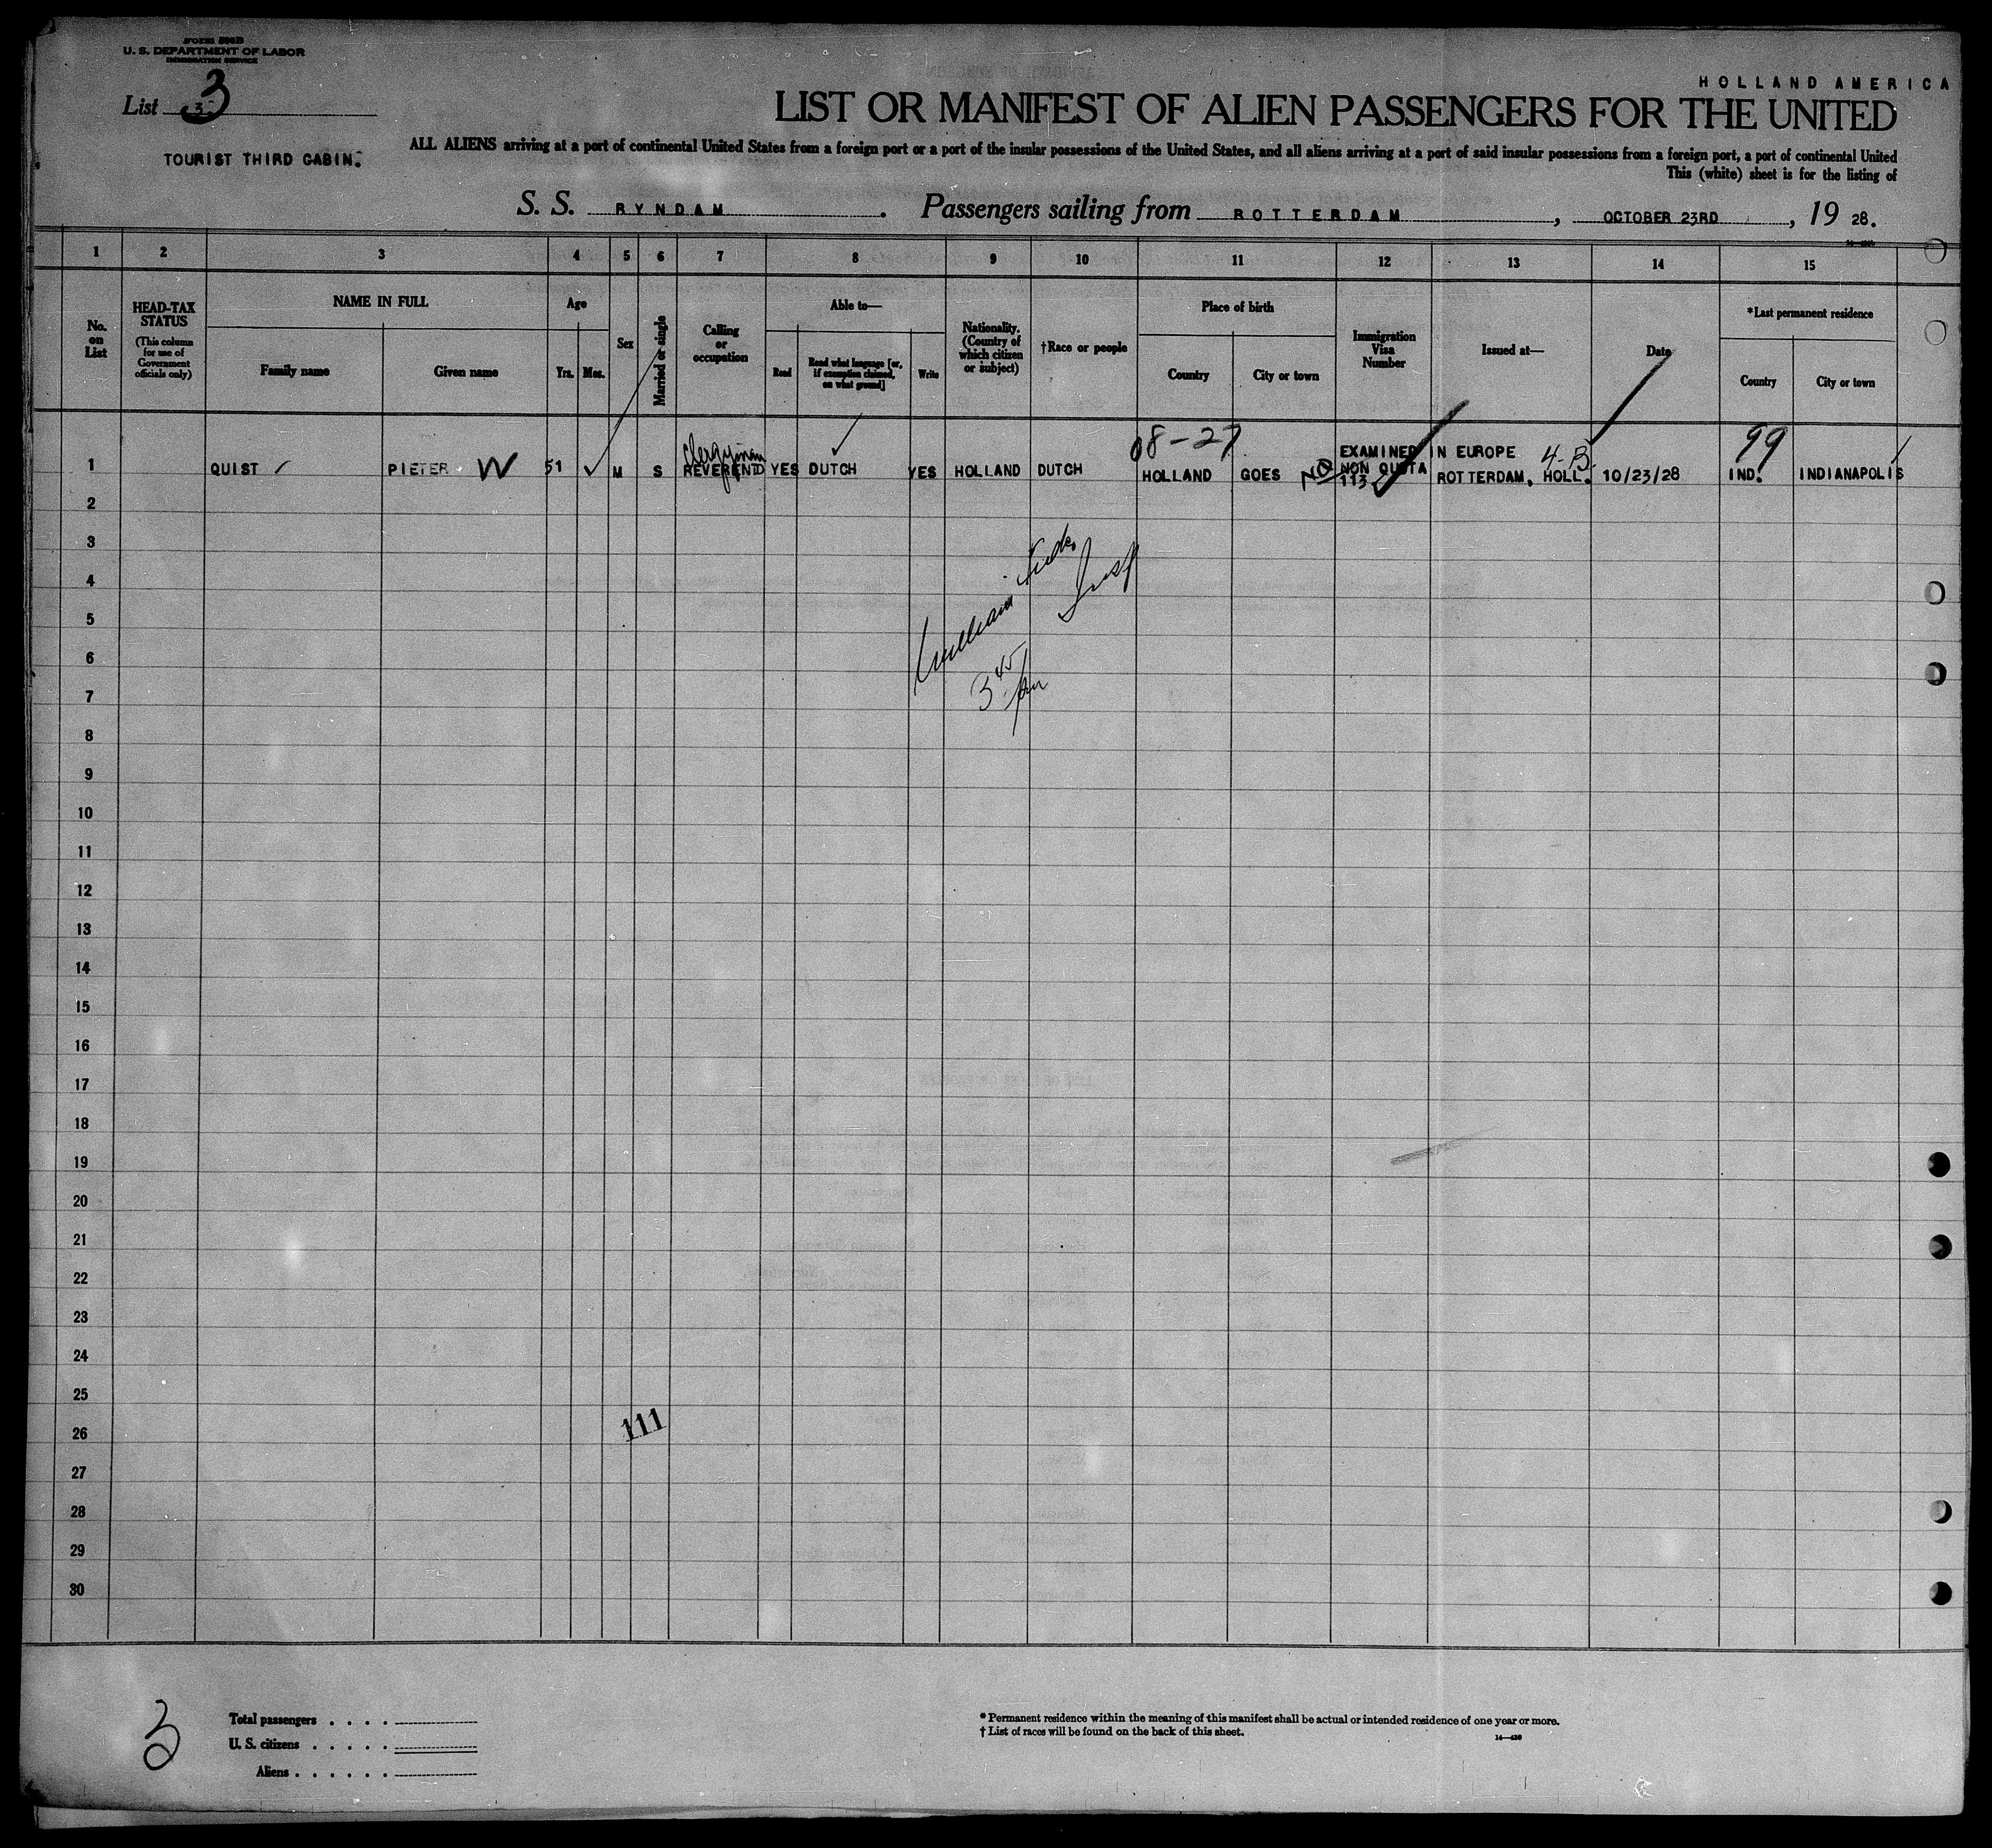 FORM 500B
U. S. DEPARTMENT OF LABOR
IMMIGRATION SERVICE
List 3 3
TOURIST THIRD CABIN.
HOLLAND AMERICA
LIST OR MANIFEST OF ALIEN PASSENGERS FOR THE UNITED
ALL ALIENS arriving at a port of continental United States from a foreign port or a port of the insular possessions of the United States, and all aliens arriving at a port of said insular possessions from a foreign port, a port of continental United
This (white) sheet is for the listing of
S. S. RYNDAM. Passengers sailing from ROTTERDAM, OCTOBER 23RD, 19 28.
1 2 3 4 5 6 7 8 9 10 11 12 13 14 15
No. on List
HEAD-TAX STATUS
(This column for use of Government officials only)
NAME IN FULL
Family name
Given name
Age
Yrs.
Mos.
Sex
Married or single
Calling or occupation
Able to—
Read
Read what language [or, if exemption claimed, on what ground]
Write
Nationality. (Country of which citizen or subject)
†Race or people
Place of birth
Country
City or town
Immigration Visa Number
Issued at—
Date
*Last permanent residence
Country
City or town
08-27
99
clergyman
EXAMINED IN EUROPE
4-B.
1 QUIST PIETER W 51 M S REVEREND YES DUTCH YES HOLLAND DUTCH HOLLAND GOES NQ NON QUOTA 113 ROTTERDAM, HOLL. 10/23/28 IND. INDIANAPOLIS
2
3
4
5
6
7
8
9
10
11
12
13
14
15
16
17
18
19
20
21
22
23
24
25
26
27
28
29
30
William
Insp
3 45 pm
111
3
Total passengers
U. S. citizens
Aliens
* Permanent residence within the meaning of this manifest shall be actual or intended residence of one year or more.
† List of races will be found on the back of this sheet.
14—430